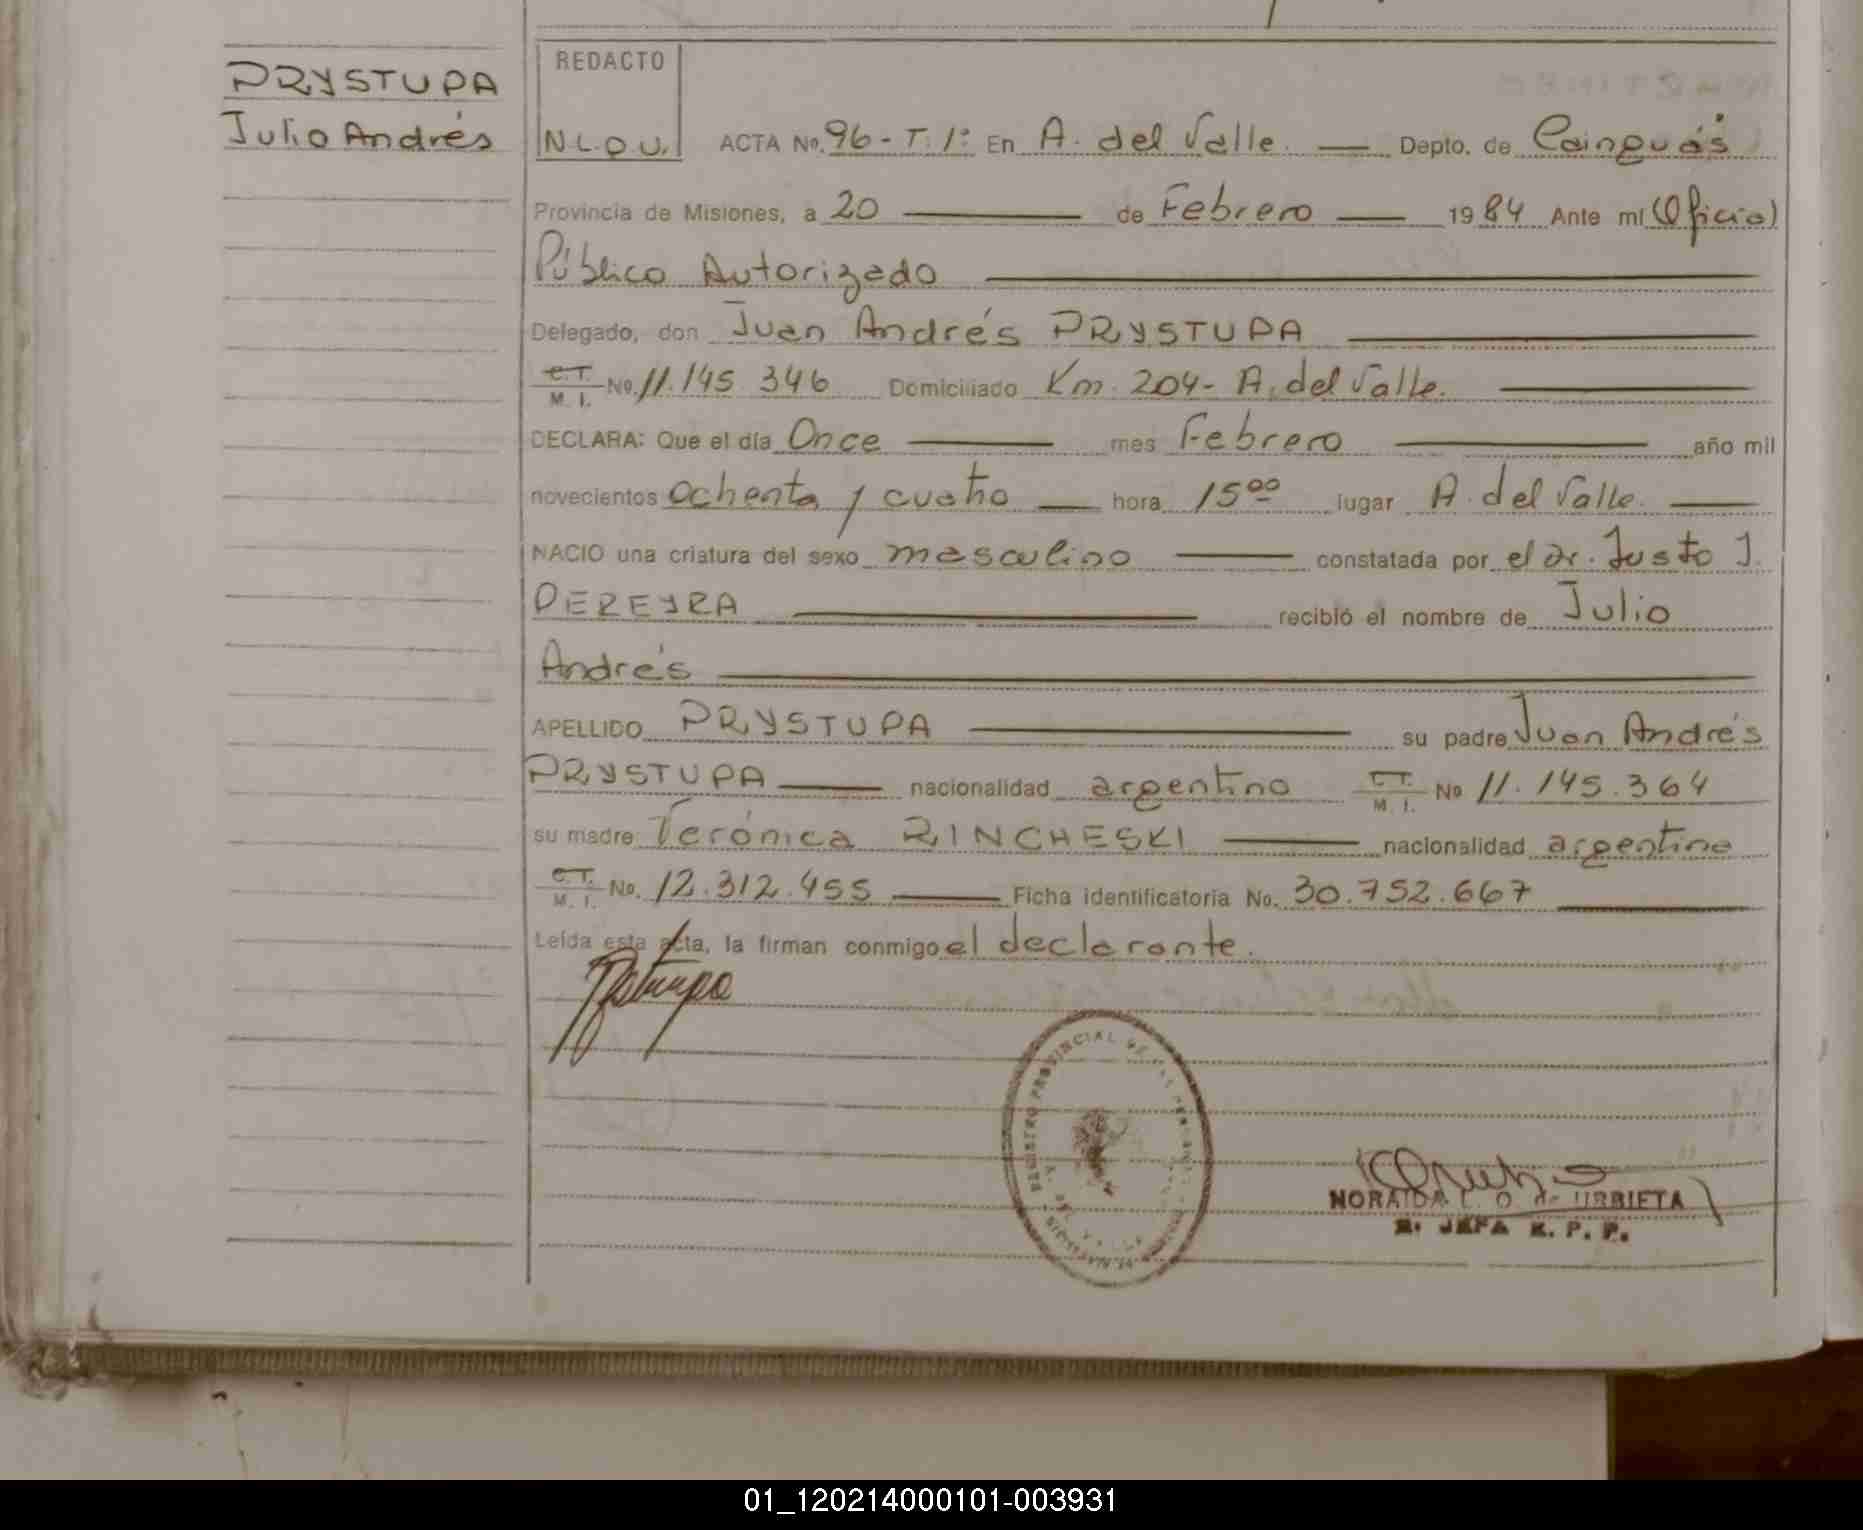 PRYSTUPA
Julio Andrés
REDACTO
N.L.O.U.
ACTA No. 96 - T. 1º En A. del Valle. Depto. de Cainguás
Provincia de Misiones, a 20 de Febrero 19 84 Ante mí (Oficial)
Público Autorizado
Delegado, don Juan Andrés PRYSTUPA
C.I. M. I. No. 11.145.346 Domiciliado Km. 204 - A. del Valle.
DECLARA: Que el día Once mes Febrero año mil
novecientos ochenta y cuatro hora 15 00 lugar A. del Valle.
NACIO una criatura del sexo masculino constatada por el dr. Justo J.
PEREYRA recibió el nombre de Julio
Andrés
APELLIDO PRYSTUPA su padre Juan Andrés
PRYSTUPA nacionalidad argentino C.I. M. I. No 11.145.364
su madre Verónica RINCHESKI nacionalidad argentina
C.I. M. I. No. 12.312.455 Ficha identificatoria No. 30.752.667
Leída esta acta, la firman conmigo el declarante.
REGISTRO PROVINCIAL DE LAS PERSONAS
MISIONES
NORAIDA L. O. de URBIETA
JEFA R. P. P.
01_120214000101-003931